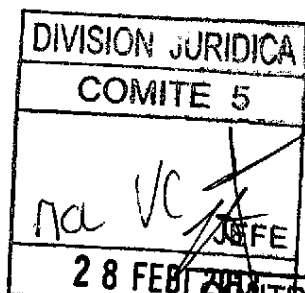 DIVISION JURIDICA
COMITE 5
na VC
JEFE
28 FEB